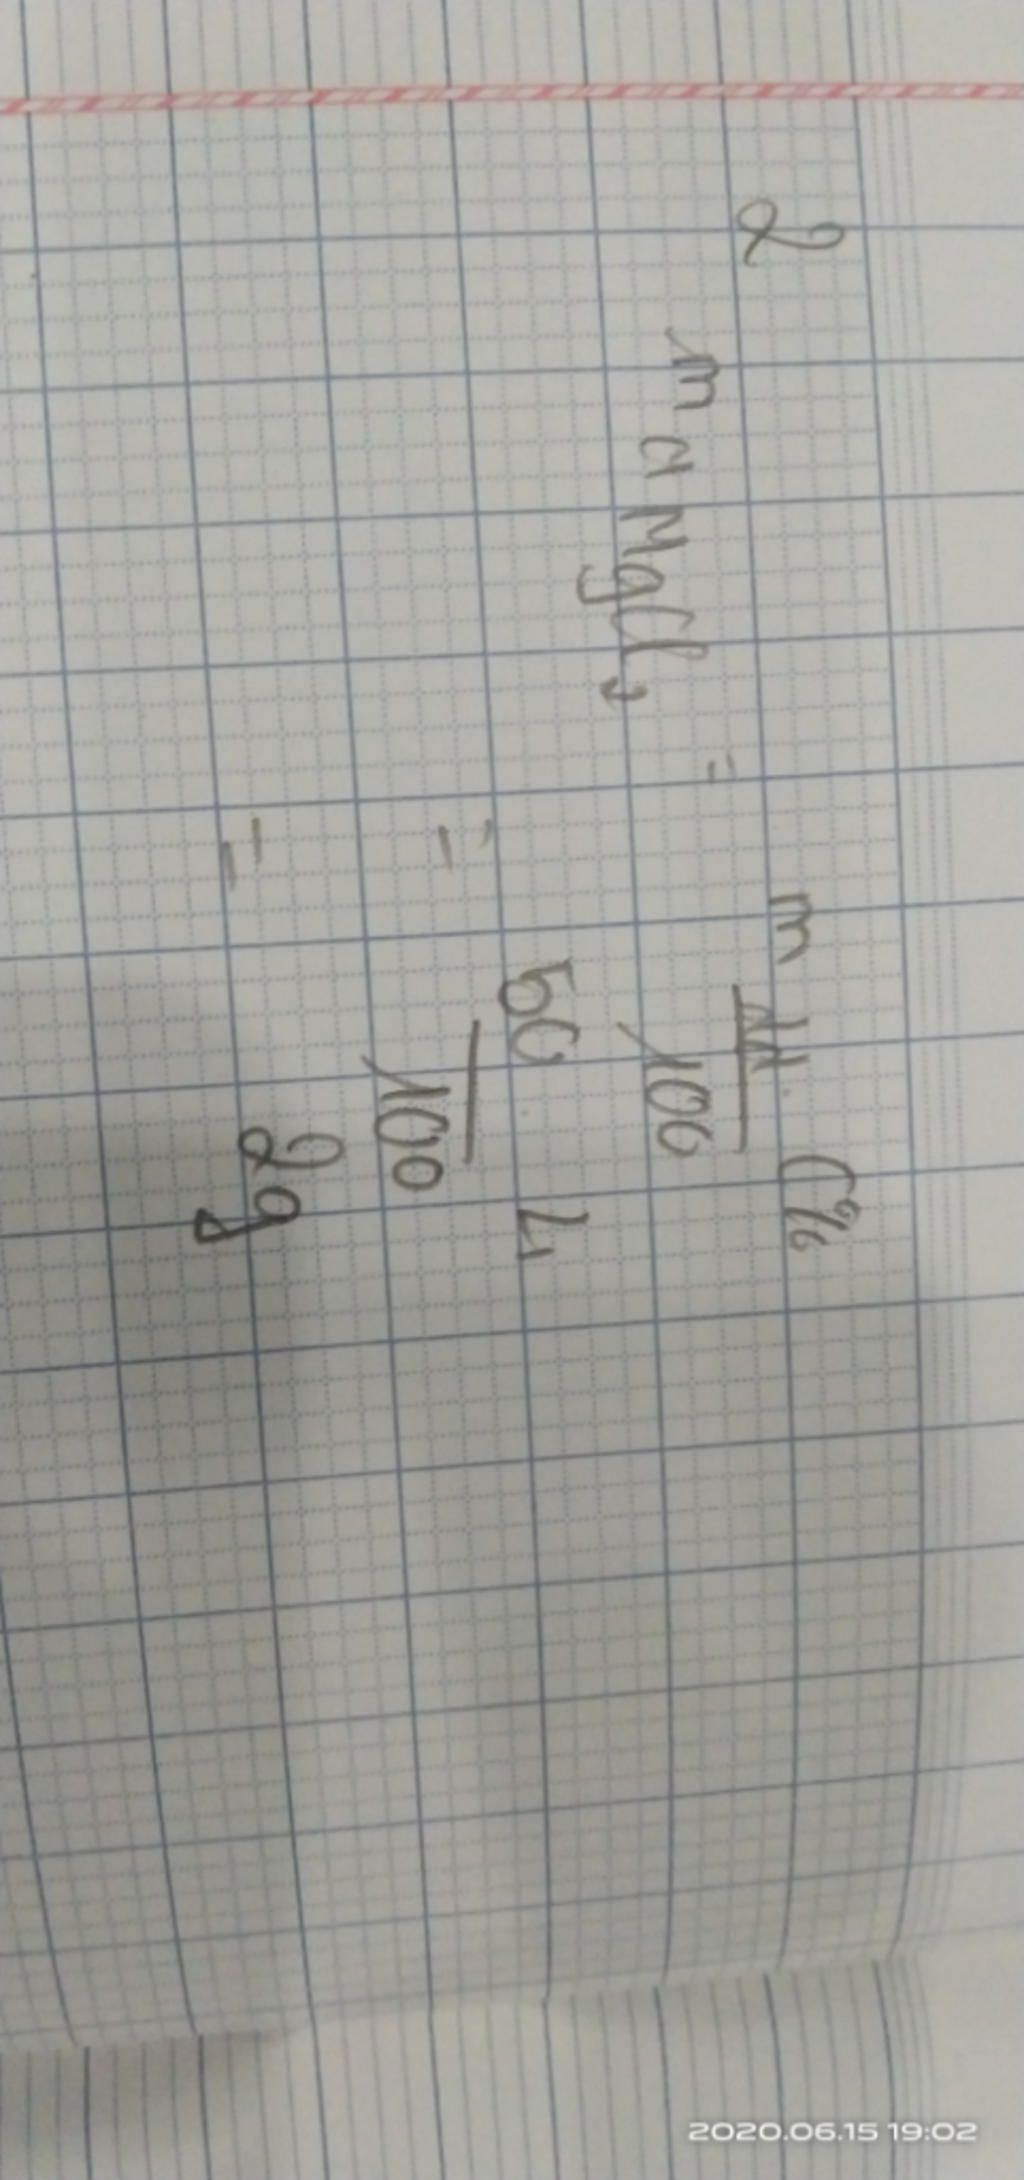 2
m ct MgCl2 = m dd. C%
100
= 50. 4
100
= 2g
2020.06.15 19:02